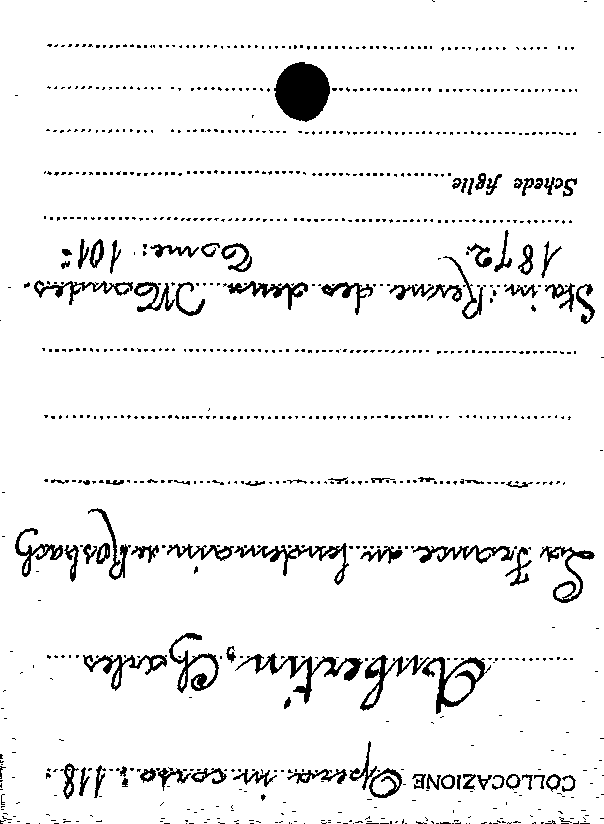 COLLOCAZIONE Opera in corso: 118.
Aubertin, Charles
La France au lendemain de Rosbach
Sta in: Revue des deux Mondes.
1872. Tome: 101°
Schede figlie